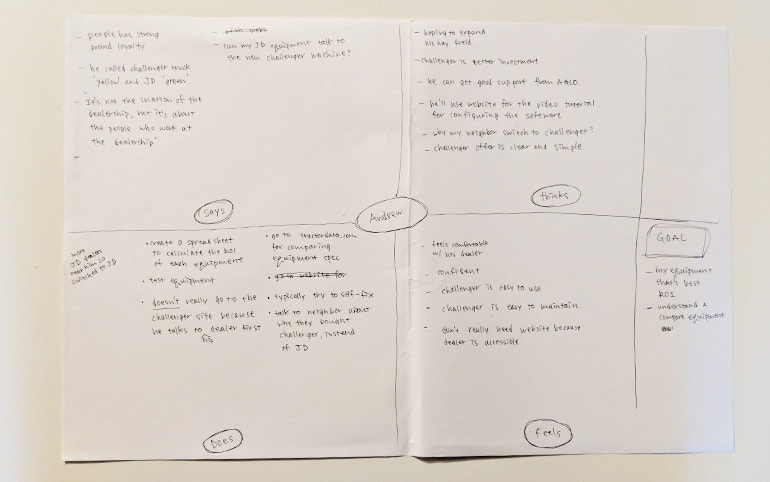 - people has strong
brand loyalty
- he called challenger truck
"yellow" and JD "green"
- "It's not the location of the
dealership, but it's about
the people who work at
the dealership"
-
- can my JD equipment talk to
the new challenger machine?
Says
- hoping to expand
his hay field
- challenger is better investment
- he can get good support from AGCO
- he'll use website for the video tutorial
for configuring the software
- why my neighbor switch to challenger?
- challenger offer is clear and simple
thinks
Andrew
more
JD dealers
near him so
switched to JD
• create a spreadsheet
to calculate the ROI
of each equipment
• test equipment
• doesn't really go to the
challenger site because
he talks to dealer first
his
• go to tractordata.com
for comparing
equipment spec
• go to website for
• typically try to self-fix
• talk to neighbor about
why they bought
challenger, instead
of JD
Does
- feels comfortable
w/ his dealer
- confident
- challenger is easy to use
• challenger is easy to maintain
- don't really need website because
dealer is accessible.
Feels
GOAL
- my equipment
that's best
ROI
- understand &
compare equipment